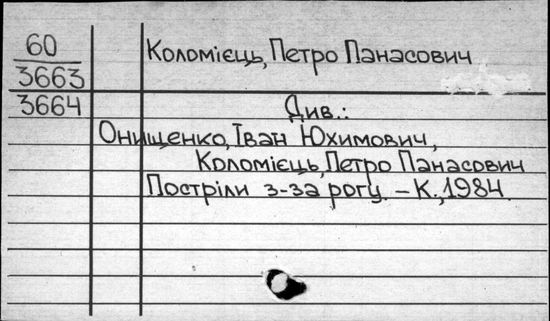 60
Коломієць, Петро Панасович
3663
3664
Див.:
Онищенко, Іван Юхимович,
Коломієць, Петро Панасович
Постріли з-за рогу. – К., 1984.